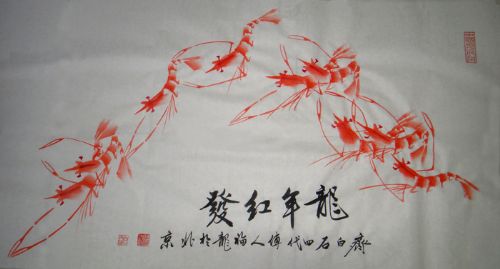 龍年紅發
齊白石四代傳人福龍於北京